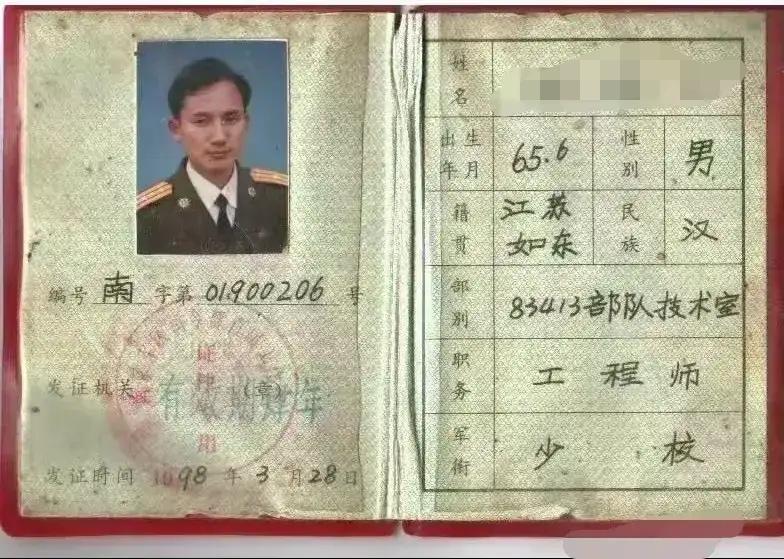 编号 南 字第 01900206 号
发证机关 (章)
证件专用
有效期肆年
发证时间 1998 年 3 月 28 日
姓名
出生年月 65.6 性别 男
籍贯 江苏如东 民族 汉
部别 83413部队技术室
职务 工程师
军衔 少校